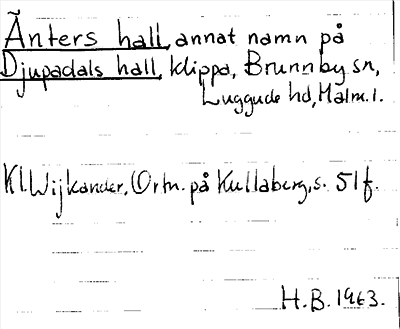 Änters hall, annat namn på
Djupadals hall, klippa, Brunnby sn,
Luggude hd, Malm. l.
Kl. Wijkander, Ortn. på Kullaberg, s. 51f.
H.B. 1963.